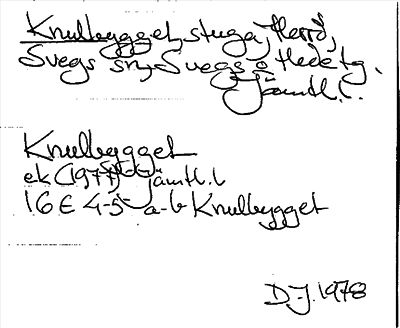 Knulbygget, stuga, Herrö,
Svegs sn, Svegs o Hede tg.
Jämtl. l.
Knulbygget
ek (1977) Jämtl. l
16E 4-5 a-b Knulbygget
D-J. 1978